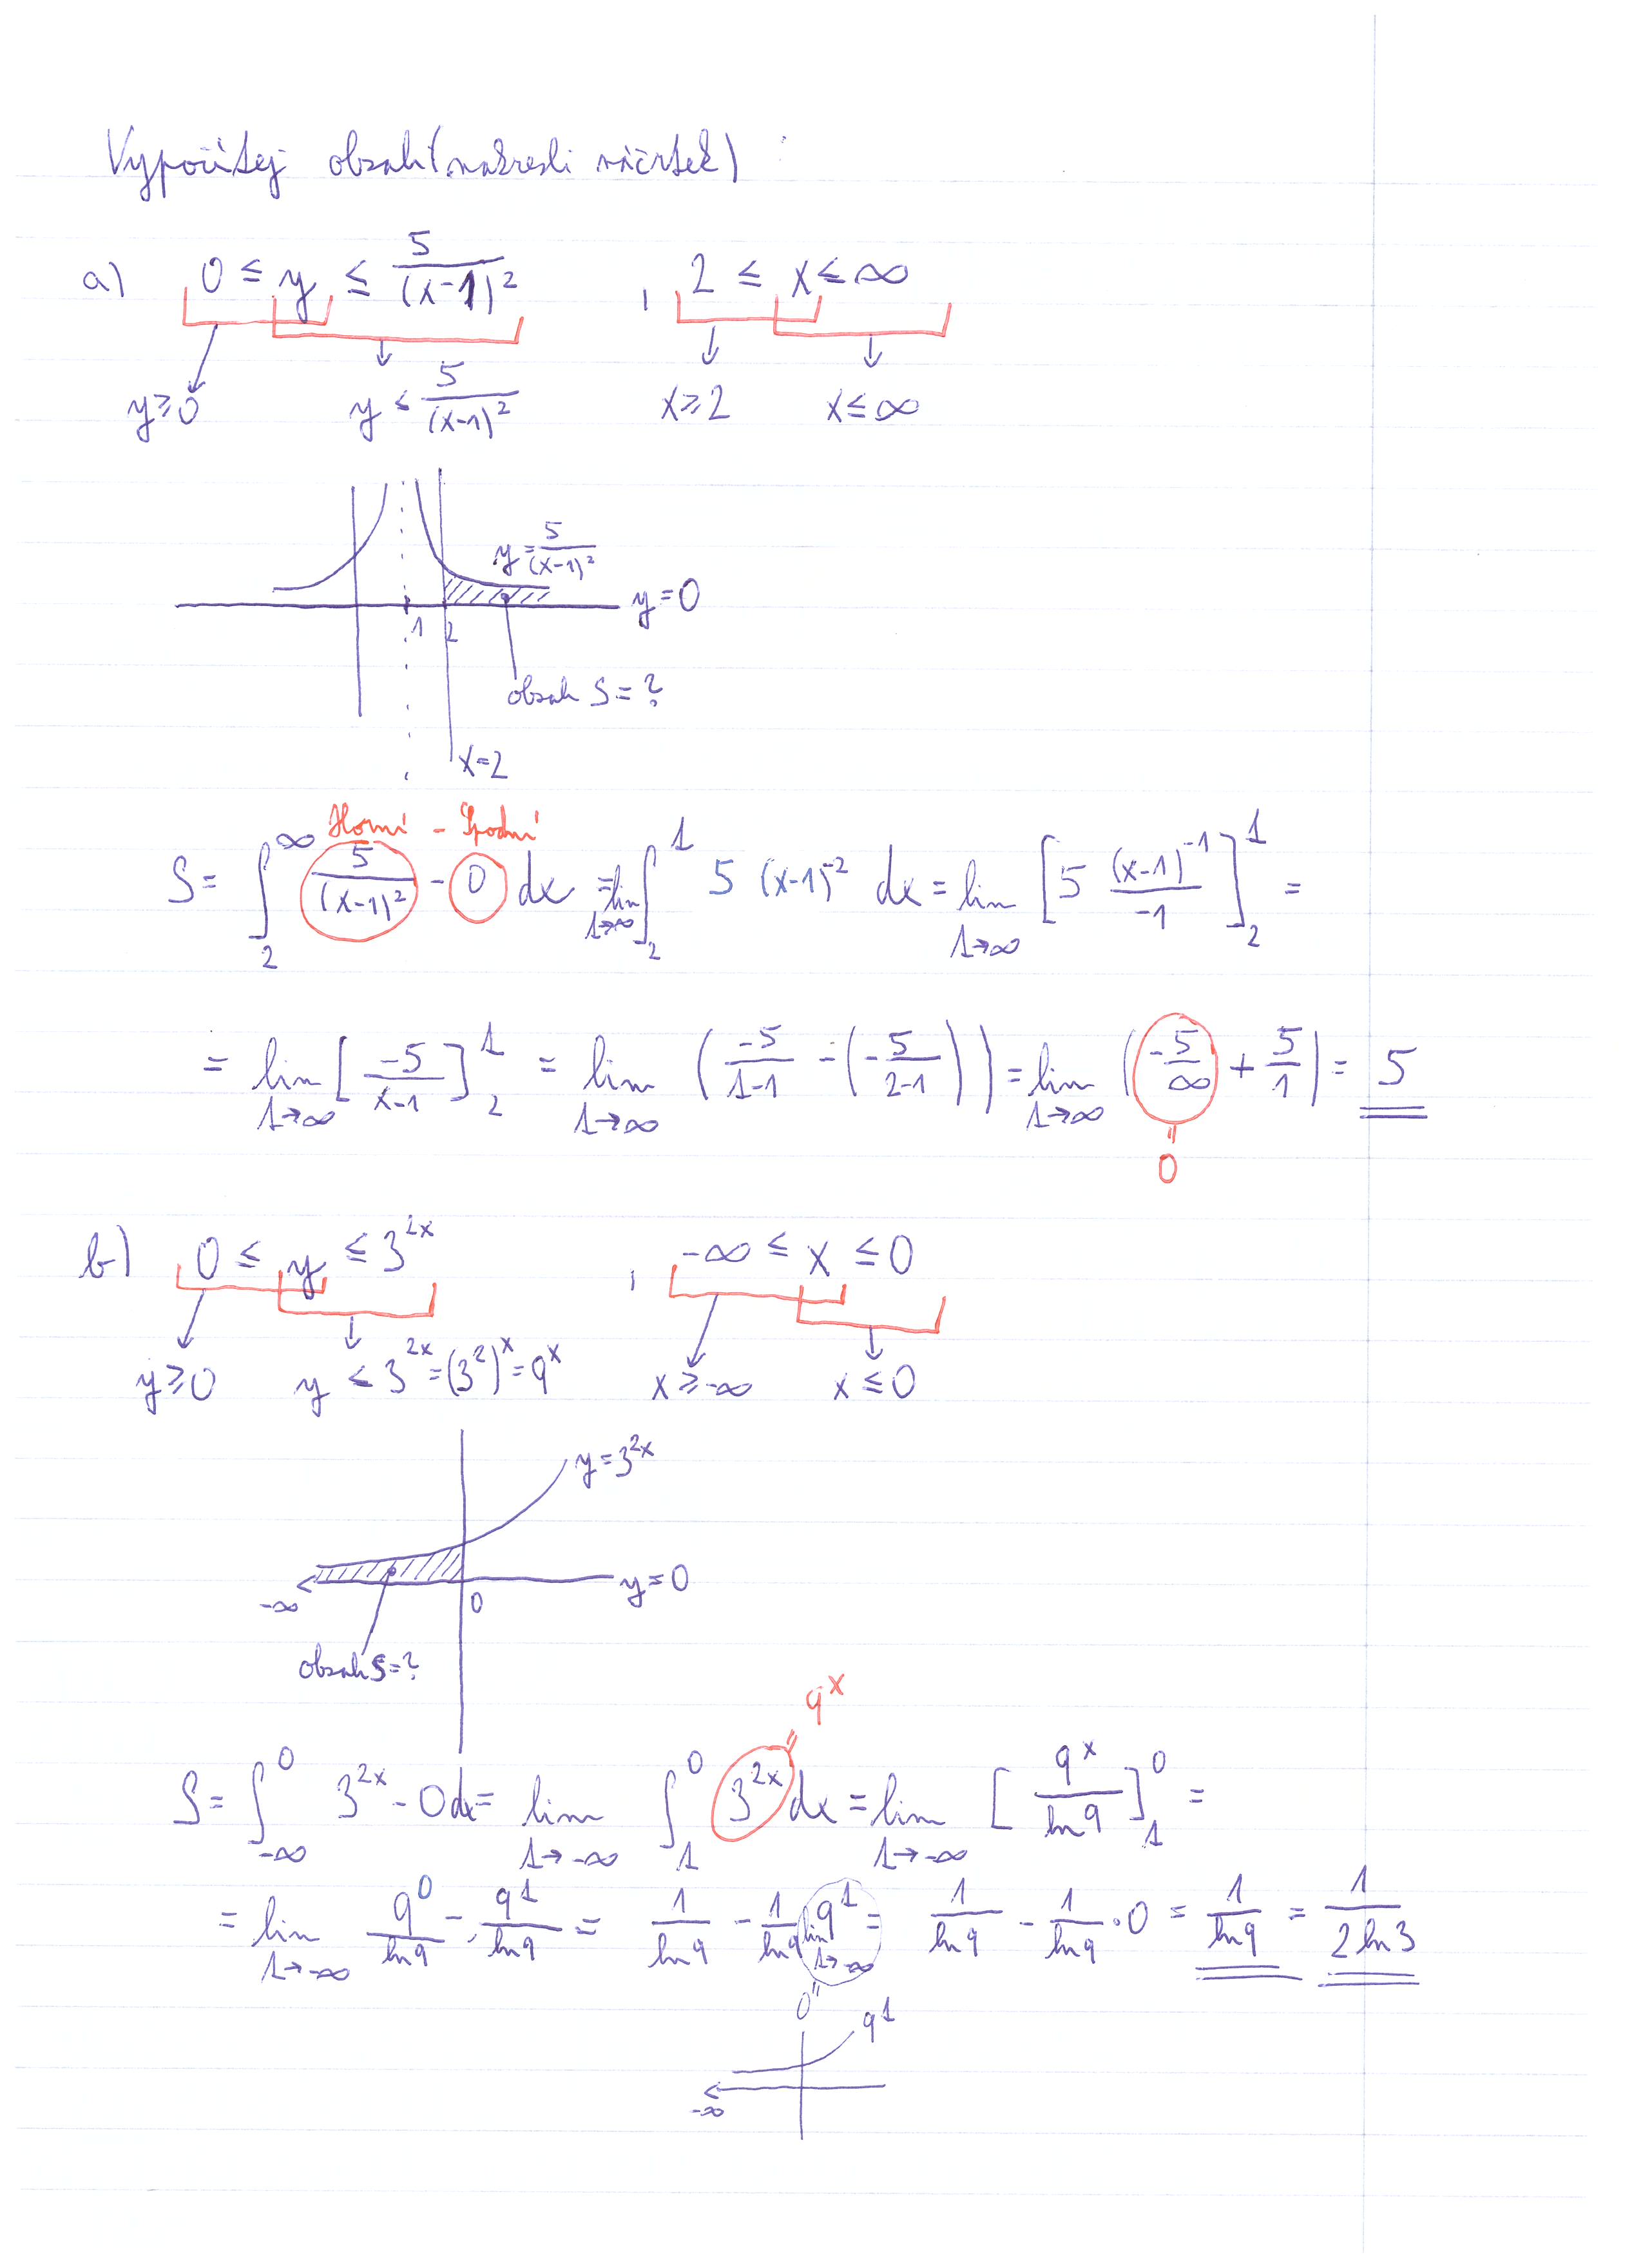 Vypočítej obsah (nakresli náčrtek) :
a) 0 ≤ y ≤ 5/(x-1)² , 2 ≤ x ≤ ∞
y ≥ 0 y ≤ 5/(x-1)² x ≥ 2 x ≤ ∞
y = 5/(x-1)²
y = 0
1 2
obsah S = ?
x = 2
Horní - Spodní
S = ∫₂^∞ 5/(x-1)² - 0 dx = lim_{t→∞} ∫₂^t 5 (x-1)⁻² dx = lim_{t→∞} [5 (x-1)⁻¹/-1]₂^t =
= lim_{t→∞} [-5/(x-1)]₂^t = lim_{t→∞} (-5/(t-1) - (-5/(2-1))) = lim_{t→∞} (-5/∞ + 5/1) = 5
= 0
b) 0 ≤ y ≤ 3^{2x} , -∞ ≤ x ≤ 0
y ≥ 0 y ≤ 3^{2x} = (3²)^x = 9^x x ≥ -∞ x ≤ 0
y = 3^{2x}
y = 0
-∞ 0
obsah S = ?
= 9^x
S = ∫_{-∞}^0 3^{2x} - 0 dx = lim_{t→-∞} ∫_t^0 3^{2x} dx = lim_{t→-∞} [9^x/ln9]_t^0 =
= lim_{t→-∞} 9⁰/ln9 - 9^t/ln9 = 1/ln9 - 1/ln9 lim_{t→-∞} 9^t = 1/ln9 - 1/ln9 · 0 = 1/ln9 = 1/(2 ln3)
0 =
9^t
-∞